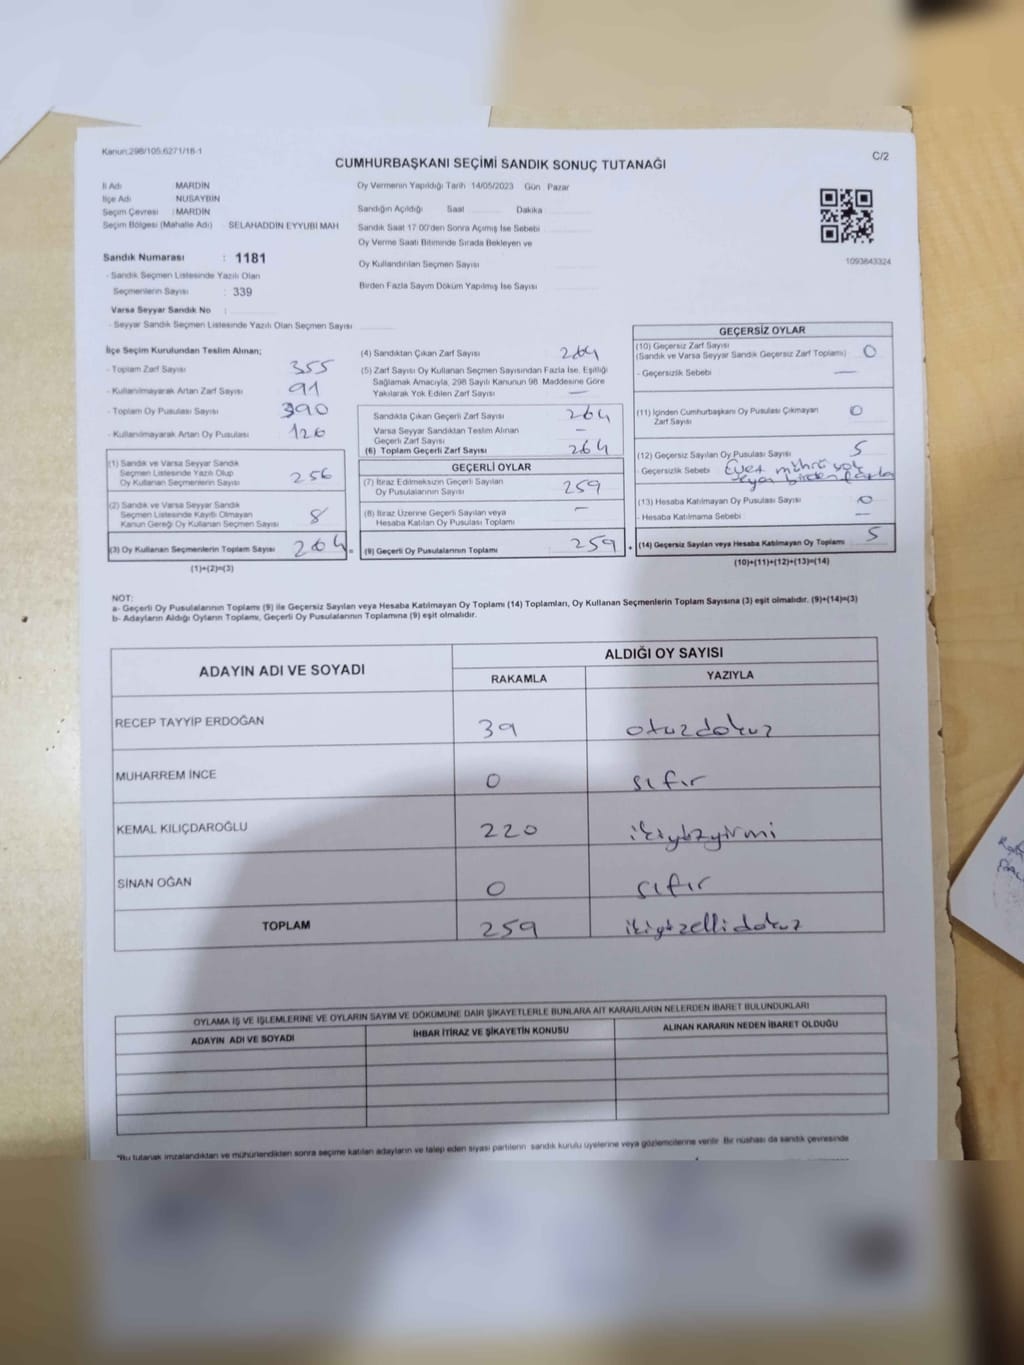 Kanun:298/105,6271/18-1
CUMHURBAŞKANI SEÇİMİ SANDIK SONUÇ TUTANAĞI
C/2
İl Adı : MARDİN
İlçe Adı : NUSAYBİN
Seçim Çevresi : MARDİN
Seçim Bölgesi (Mahalle Adı) : SELAHADDİN EYYUBİ MAH
Sandık Numarası : 1181
- Sandık Seçmen Listesinde Yazılı Olan
Seçmenlerin Sayısı : 339
Varsa Seyyar Sandık No :
- Seyyar Sandık Seçmen Listesinde Yazılı Olan Seçmen Sayısı
Oy Vermenin Yapıldığı Tarih 14/05/2023 Gün Pazar
Sandığın Açıldığı Saat Dakika
Sandık Saat 17:00'den Sonra Açımış İse Sebebi
Oy Verme Saati Bitiminde Sırada Bekleyen ve
Oy Kullandırılan Seçmen Sayısı
Birden Fazla Sayım Döküm Yapılmış İse Sayısı
1093843324
İlçe Seçim Kurulundan Teslim Alınan;
- Toplam Zarf Sayısı 355
- Kullanılmayarak Artan Zarf Sayısı 91
- Toplam Oy Pusulası Sayısı 390
- Kullanılmayarak Artan Oy Pusulası 126
(1) Sandık ve Varsa Seyyar Sandık
Seçmen Listesinde Yazılı Olup
Oy Kullanan Seçmenlerin Sayısı 256
(2) Sandık ve Varsa Seyyar Sandık
Seçmen Listesinde Kayıtlı Olmayan
Kanun Gereği Oy Kullanan Seçmen Sayısı 8
(3) Oy Kullanan Seçmenlerin Toplam Sayısı 264 =
(1)+(2)=(3)
(4) Sandıktan Çıkan Zarf Sayısı 264
(5) Zarf Sayısı Oy Kullanan Seçmen Sayısından Fazla İse, Eşitliği
Sağlamak Amacıyla, 298 Sayılı Kanunun 98 Maddesine Göre
Yakılarak Yok Edilen Zarf Sayısı —
Sandıkta Çıkan Geçerli Zarf Sayısı 264
Varsa Seyyar Sandıktan Teslim Alınan
Geçerli Zarf Sayısı —
(6) Toplam Geçerli Zarf Sayısı 264
GEÇERLİ OYLAR
(7) İtiraz Edilmeksizin Geçerli Sayılan
Oy Pusulalarının Sayısı 259
(8) İtiraz Üzerine Geçerli Sayılan veya
Hesaba Katılan Oy Pusulası Toplamı —
(9) Geçerli Oy Pusulalarının Toplamı 259 +
GEÇERSİZ OYLAR
(10) Geçersiz Zarf Sayısı
(Sandık ve Varsa Seyyar Sandık Geçersiz Zarf Toplamı) 0
- Geçersizlik Sebebi —
(11) İçinden Cumhurbaşkanı Oy Pusulası Çıkmayan
Zarf Sayısı 0
(12) Geçersiz Sayılan Oy Pusulası Sayısı 5
- Geçersizlik Sebebi Evet mührü yok
veya birden fazla
(13) Hesaba Katılmayan Oy Pusulası Sayısı 0
- Hesaba Katılmama Sebebi —
(14) Geçersiz Sayılan veya Hesaba Katılmayan Oy Toplamı 5
(10)+(11)+(12)+(13)=(14)
NOT:
a- Geçerli Oy Pusulalarının Toplamı (9) ile Geçersiz Sayılan veya Hesaba Katılmayan Oy Toplamı (14) Toplamları, Oy Kullanan Seçmenlerin Toplam Sayısına (3) eşit olmalıdır. (9)+(14)=(3)
b- Adayların Aldığı Oyların Toplamı, Geçerli Oy Pusulalarının Toplamına (9) eşit olmalıdır.
ADAYIN ADI VE SOYADI ALDIĞI OY SAYISI
RAKAMLA YAZIYLA
RECEP TAYYİP ERDOĞAN 39 otuzdokuz
MUHARREM İNCE 0 sıfır
KEMAL KILIÇDAROĞLU 220 ikiyüzyirmi
SİNAN OĞAN 0 sıfır
TOPLAM 259 ikiyüzellidokuz
OYLAMA İŞ VE İŞLEMLERİNE VE OYLARIN SAYIM VE DÖKÜMÜNE DAİR ŞİKAYETLERLE BUNLARA AİT KARARLARIN NELERDEN İBARET BULUNDUKLARI
ADAYIN ADI VE SOYADI İHBAR İTİRAZ VE ŞİKAYETİN KONUSU ALINAN KARARIN NEDEN İBARET OLDUĞU
*Bu tutanak imzalandıktan ve mühürlendikten sonra seçime katılan adayların ve talep eden siyasi partilerin sandık kurulu üyelerine veya gözlemcilerine verilir. Bir nüshası da sandık çevresinde